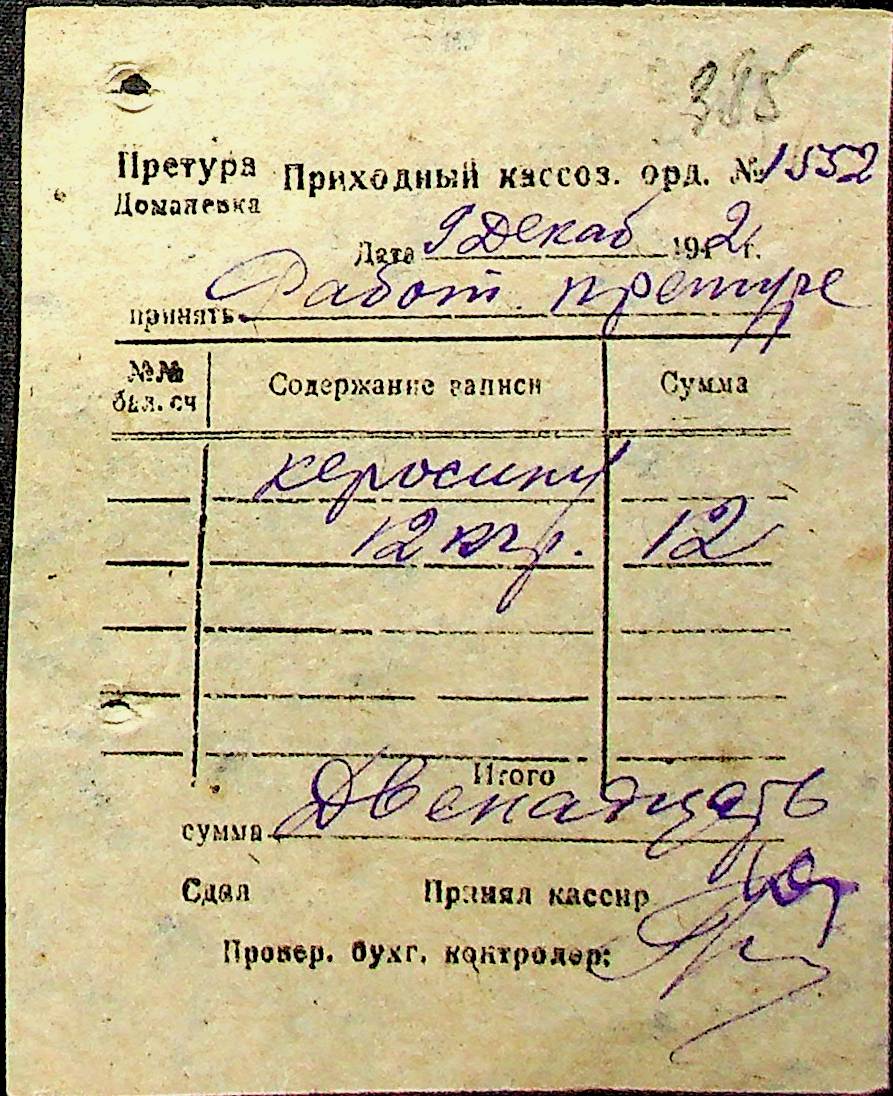 385
Претура Приходный кассов. орд. № 1552
Доманевка
Дата 9 Декаб 1942 г.
принять Работ. претуре
№№ бал. сч Содержание записи Сумма
керосину
12 кгр. 12
Итого
сумма Двенадцать
Сдал Принял кассир
Провер. бухг. контролер: